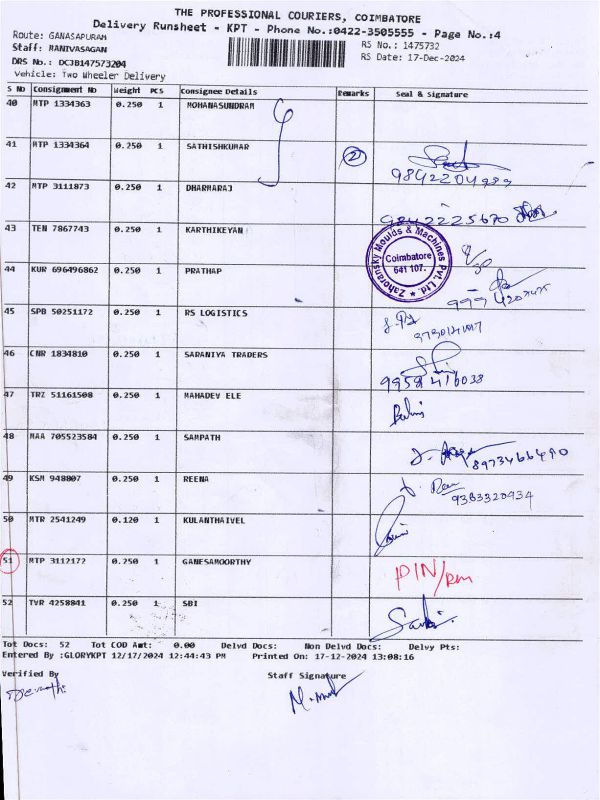 THE PROFESSIONAL COURIERS, COIMBATORE
Delivery Runsheet - KPT - Phone No.:0422-3505555 - Page No.:4
Route: GANASAPURAM
Staff: MANIVASAGAN
DRS No.: DCJB147573204
Vehicle: Two Wheeler Delivery
RS No.: 1475732
RS Date: 17-Dec-2024
S No Consignment No Weight PCS Consignee Details Remarks Seal & Signature
40 MTP 1334363 0.250 1 MOHANASUNDRAM
41 MTP 1334364 0.250 1 SATHISHKUMAR 2
9842204989
42 MTP 3111873 0.250 1 DHARMARAJ
9842225670
43 TEN 7867743 0.250 1 KARTHIKEYAN
Zahoransky Moulds & Machines Pvt. Ltd.
Coimbatore
641 107.
44 KUR 696496862 0.250 1 PRATHAP
45 SPB 50251172 0.250 1 RS LOGISTICS
46 CNR 1834810 0.250 1 SARANIYA TRADERS
9952416038
47 TRZ 51161508 0.250 1 MAHADEV ELE
48 MAA 705523584 0.250 1 SAMPATH
8973466490
49 KSM 948807 0.250 1 REENA
9383320934
50 MTR 2541249 0.120 1 KULANTHAIVEL
51 MTP 3112172 0.250 1 GANESAMOORTHY
PIN/Rm
52 TVR 4258841 0.250 1 SBI
Tot Docs: 52 Tot COD Amt: 0.00 Delvd Docs: Non Delvd Docs: Delvy Pts:
Entered By :GLORYKPT 12/17/2024 12:44:43 PM Printed On: 17-12-2024 13:08:16
Verified By Staff Signature